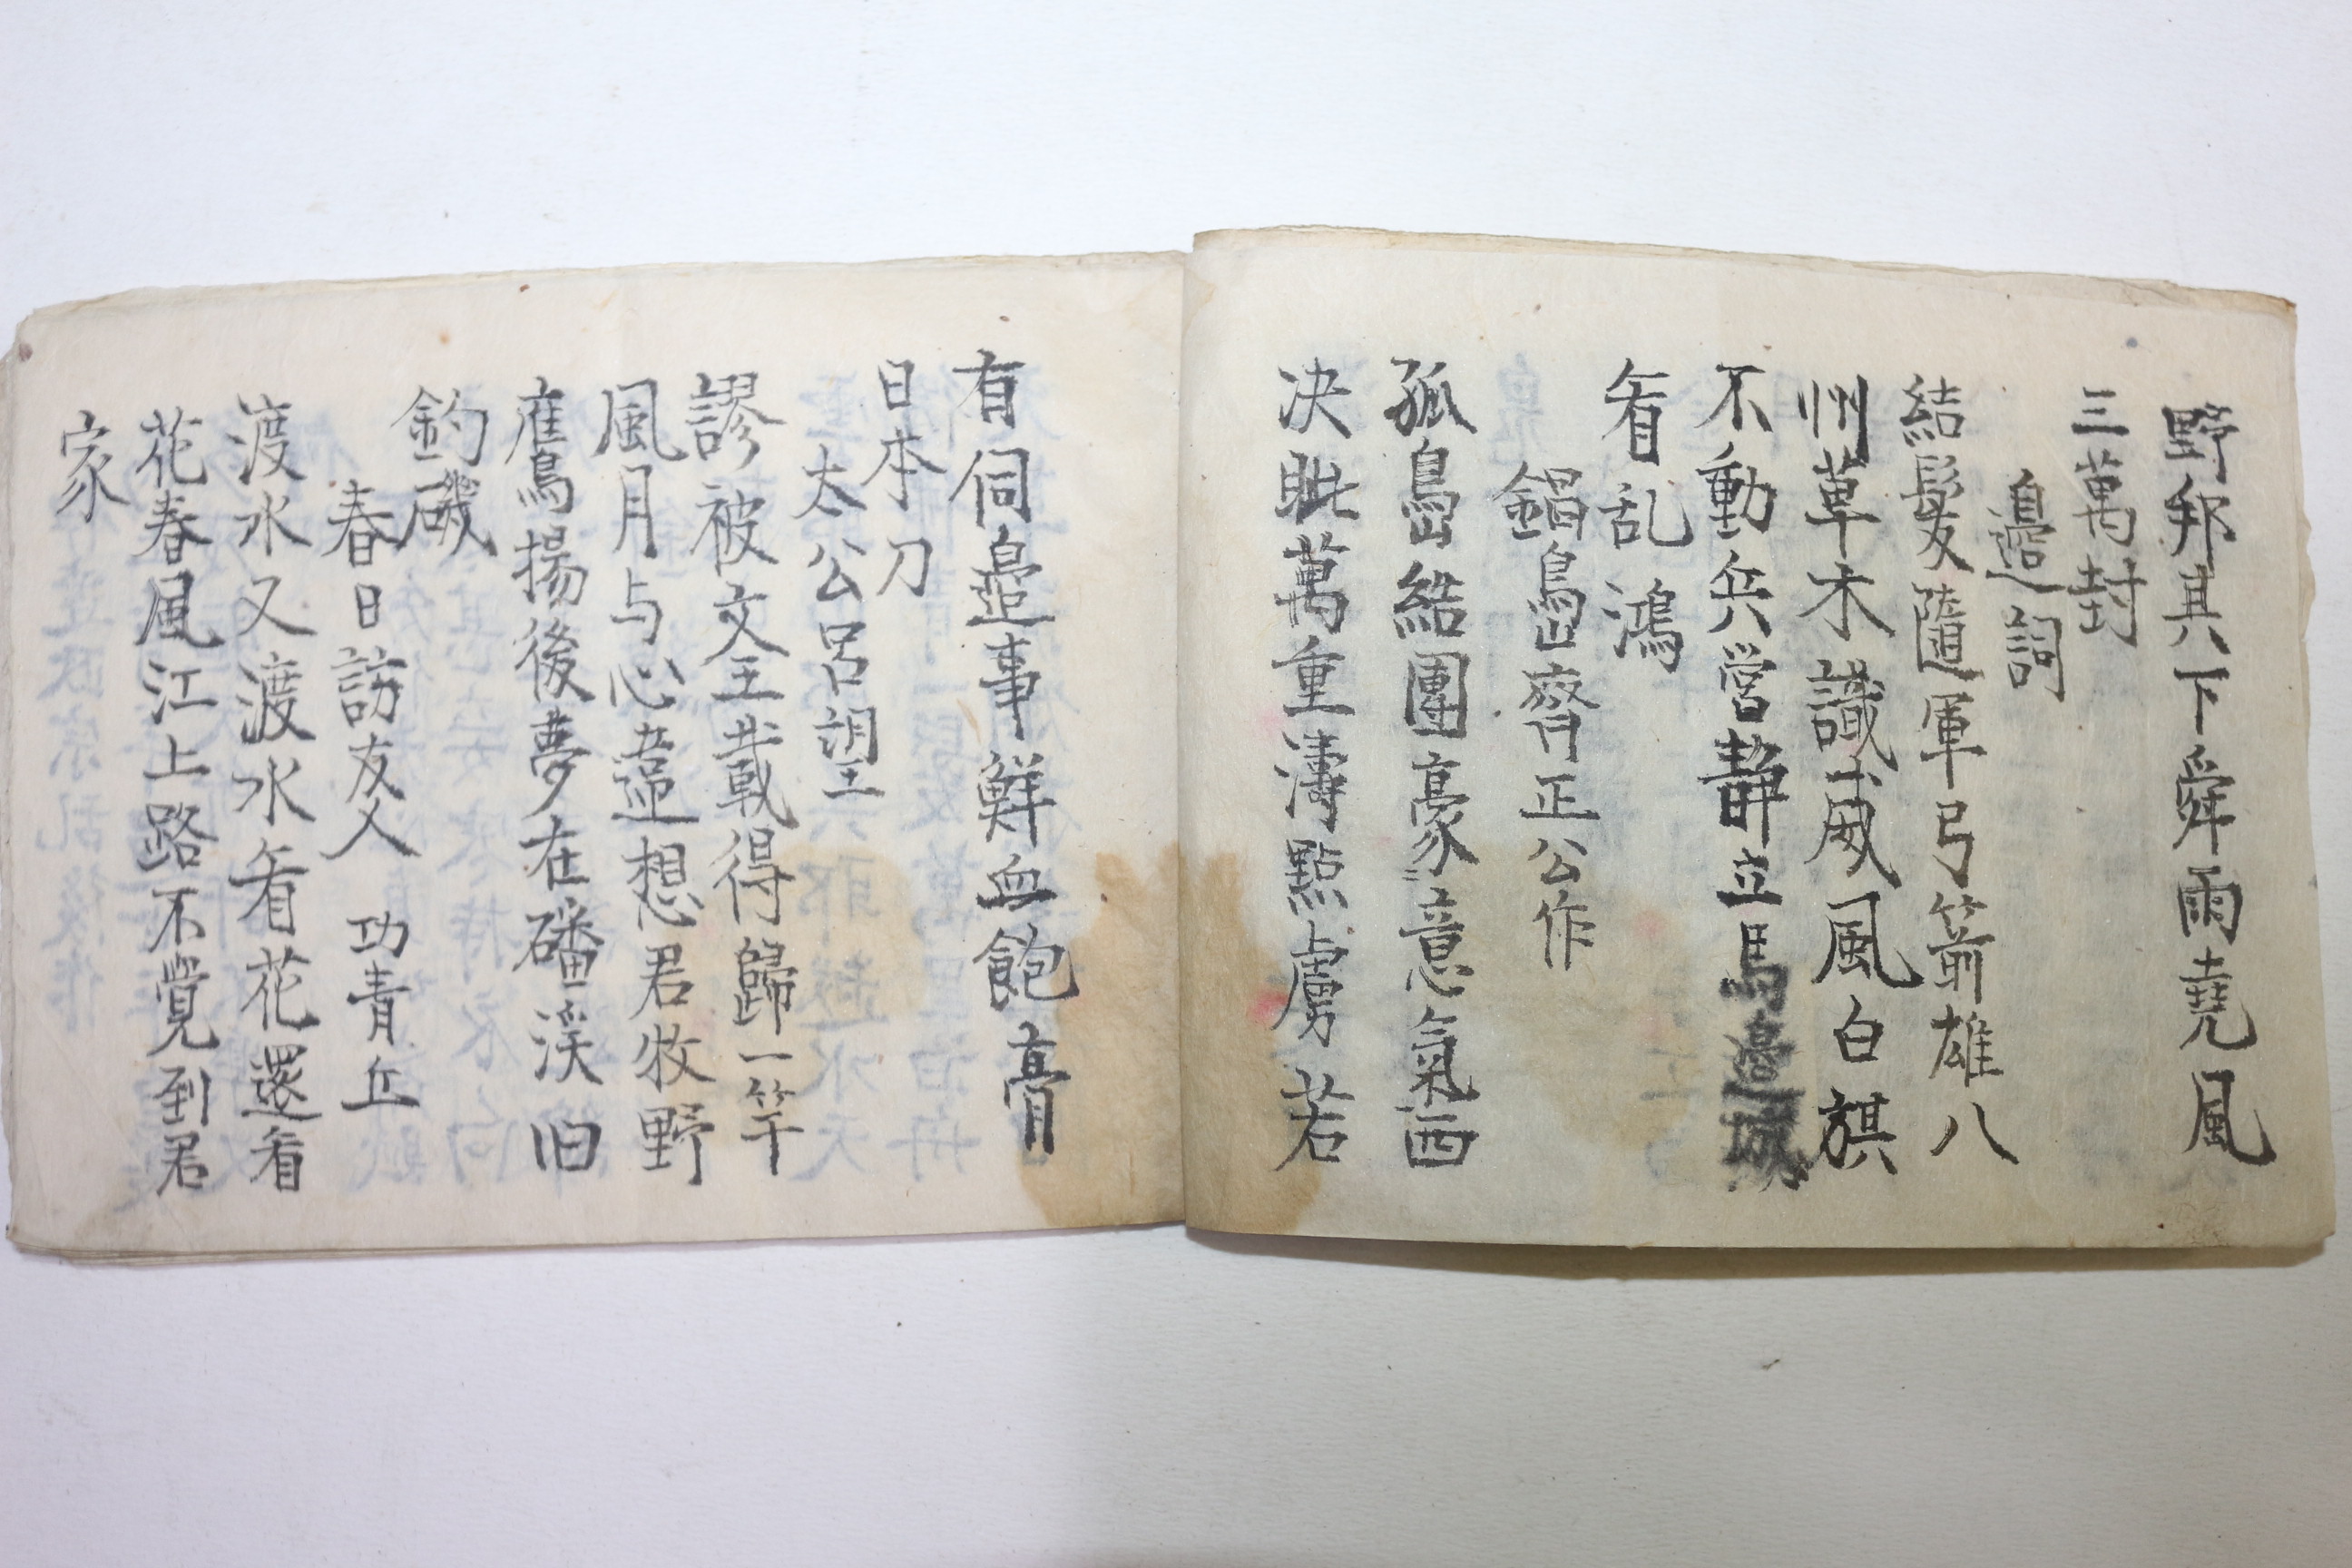 野邦其下舜雨堯風
三萬封
邉詞
結髪随軍弓箭雄八
州草木識威風白旗
不動兵營静立馬邉城
看乱鴻
鍋島齊正公作
孤島結團豪意氣西
决眦萬重濤點虜若
有伺邉事鮮血飽膏
日本刀
太公呂望
謬被文王載得歸一竿
風月与心違想君牧野
鷹揚後夢在磻渓旧
釣磯
春日訪友人 功青丘
渡水又渡水看花還看
花春風江上路不覚到君
家